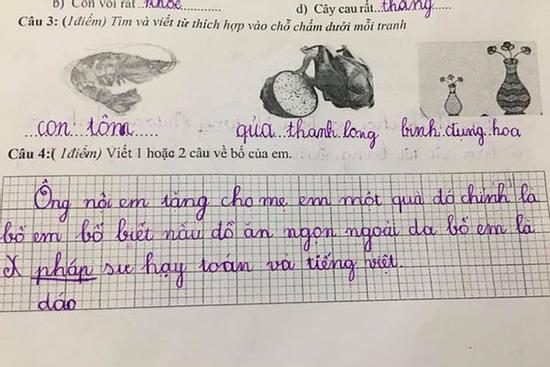 b) Con voi rất..khỏe............
d) Cây cau rất..thẳng.....
Câu 3: (1điểm) Tìm và viết từ thích hợp vào chỗ chấm dưới mỗi tranh
...con...tôm..... quả...thanh long bình đựng hoa
Câu 4:( 1điểm) Viết 1 hoặc 2 câu về bố của em.
Ông nội em tặng cho mẹ em một quà đó chính là
bố em bố biết nấu đồ ăn ngon ngoài da bố em là
pháp sư hạy toán và tiếng việt.
dáo